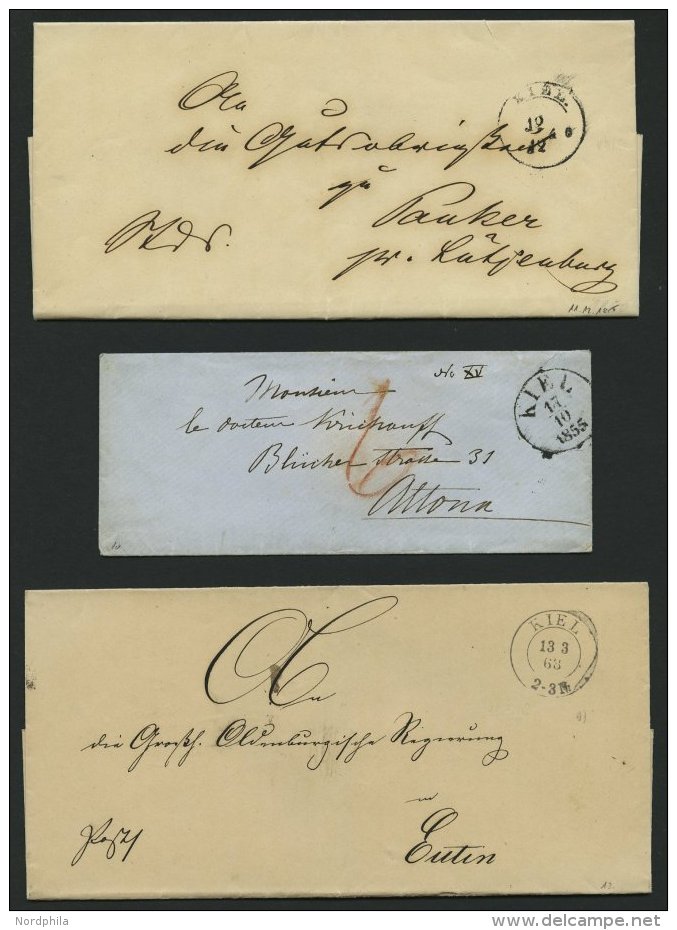 An
KIEL.
die Gutsobrigkeit
zu
Panker
pr. Lütjenburg
No XV
Monsieur
le docteur Kirchhoff
Blücher Strasse 31
Altona
KIEL
17
10
1855
6
An
KIEL
13 3
63
2-3
die Großh. Oldenburgische Regierung
in
Eutin
Nordphila
delcampe.net